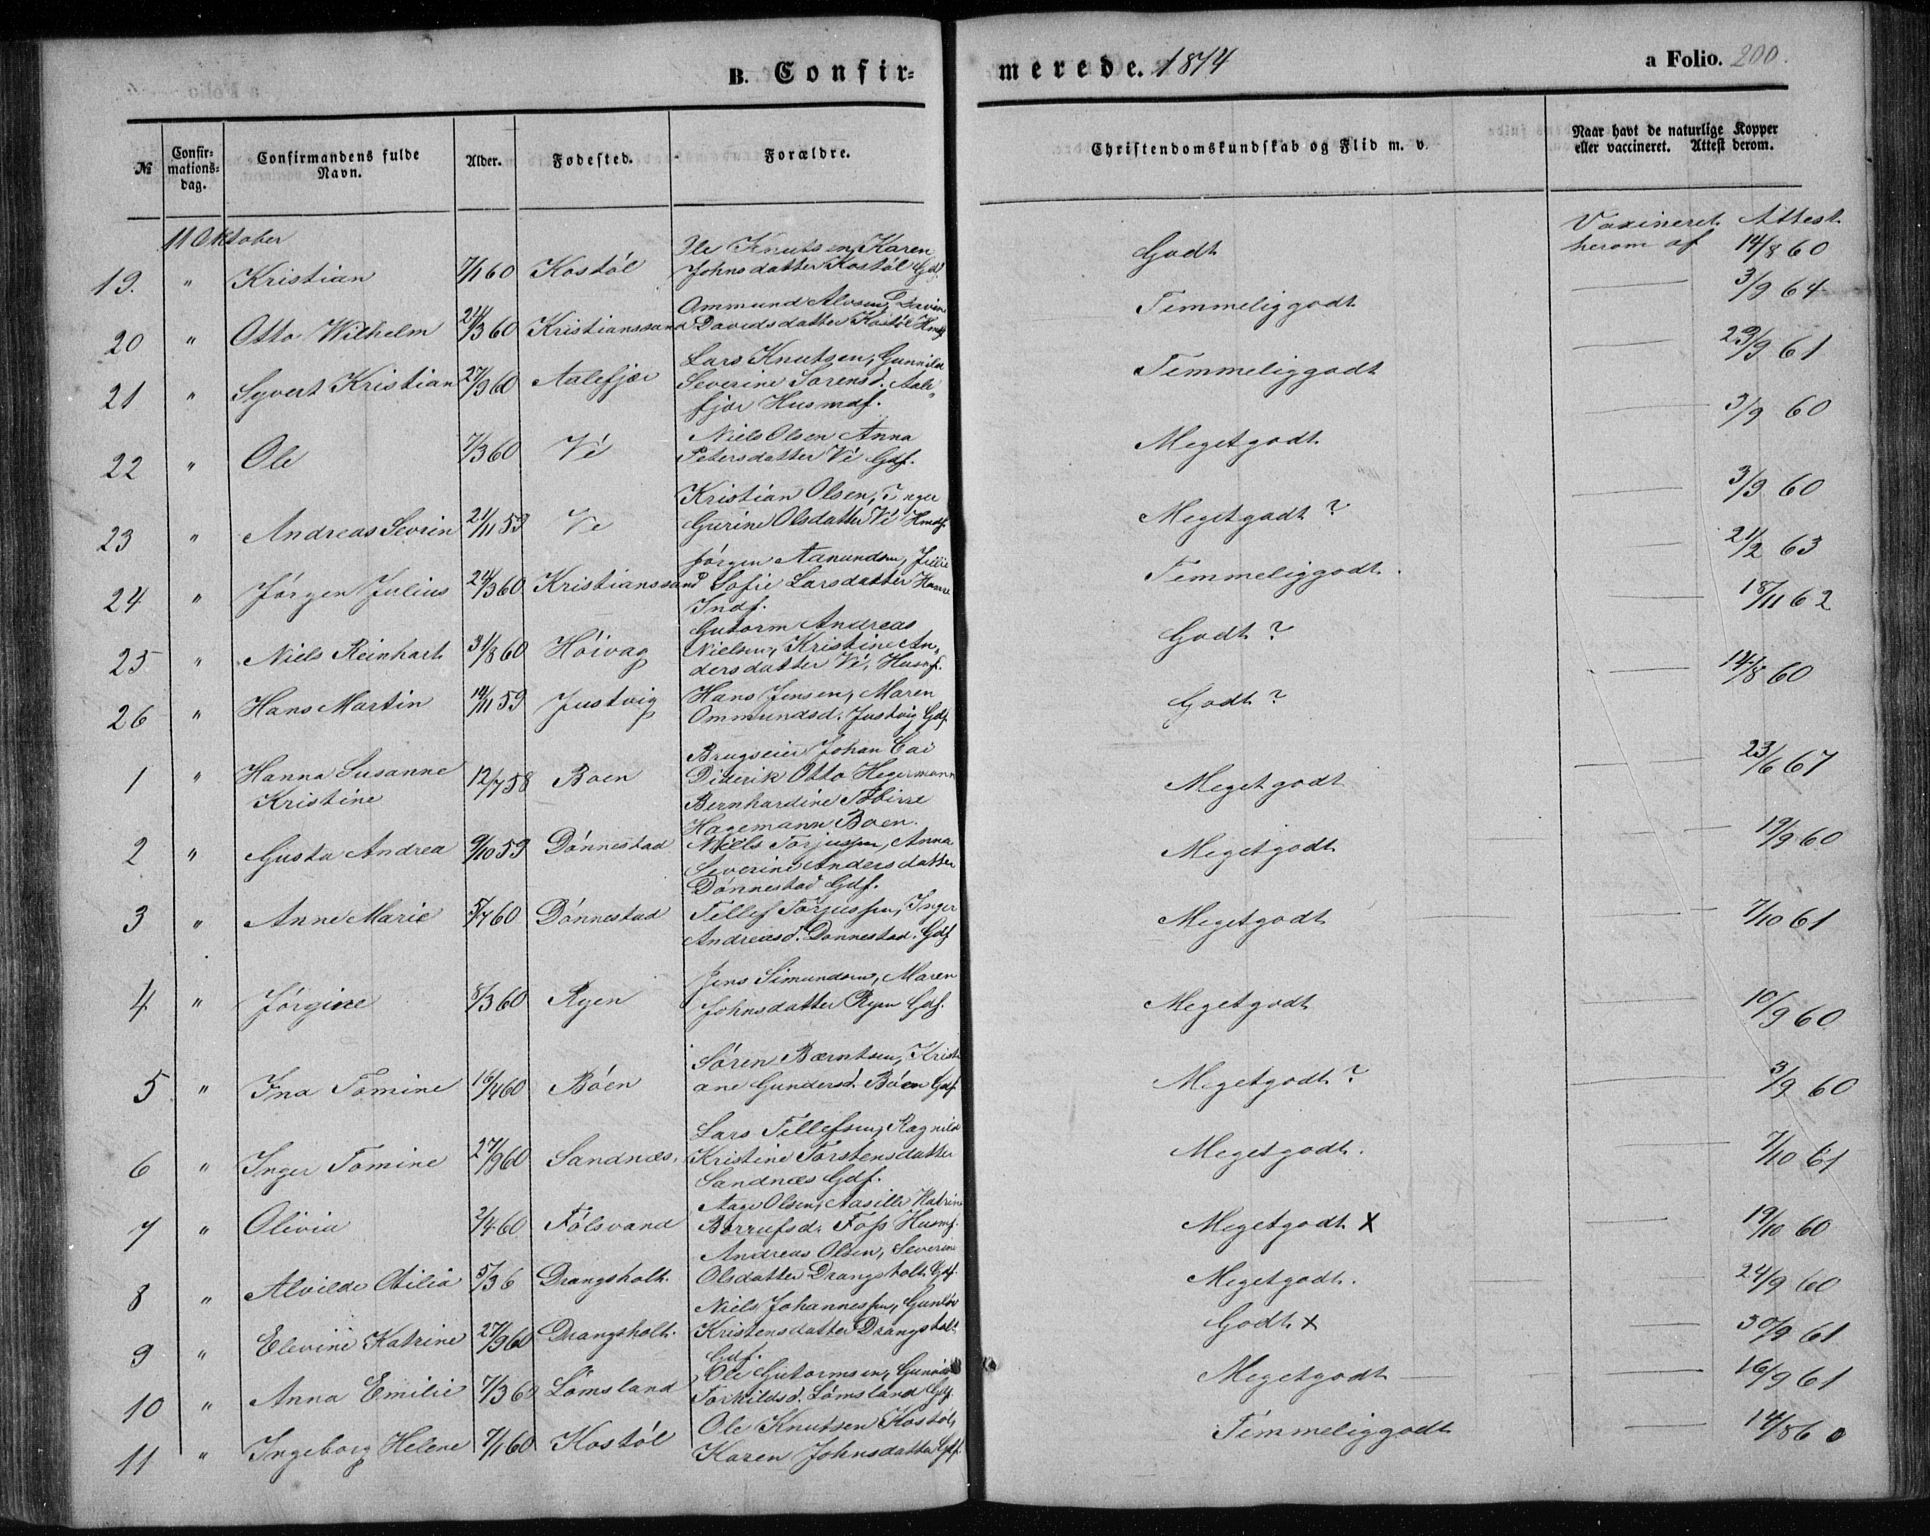 B. Confir-
merede. 1874
a Folio. 200
№
Confir-
mations-
dag.
Confirmandens fulde
Navn.
Alder.
Fødested.
Forældre.
Christendomskundskab og Flid m. v.
Naar havt de naturlige Kopper
eller vaccineret. Attest derom.
11 Oktober
Vaxineret Attest
herom af
19. " Kristian 7/1 60 Kostöl Ole Knutsen, Karen
Johnsdatter Kostöl Gdf. Godt 14/8 60
20 " Otto Wilhelm 24/3 60 Kristianssand Ommund Alvsen,
Davidsdatter Kostöl Hmdf Temmeliggodt 3/9 64
21 " Syvert Kristian 27/9 60 Aalefjær Lars Knutsen, Gunnild
Severine Sorensd. Aale-
fjær Husmdf. Temmeliggodt 29/9 61
22 " Ole 7/3 60 Vé Niels Olsen Anna
Petersdatter Vé Gdf. Megetgodt 3/9 60
23 " Andreas Sevrin 21/11 59 Ve Kristian Olsen, Inger
Gurine Olsdatter Vé Hmdf. Megetgodt ? 3/9 60
24 " Jörgen Julius 24/3 60 Kristianssand Jörgen Aanundsen, Jillie
Sofie Larsdatter Hanne
Indf. Temmeliggodt. 21/2 63
25 " Niels Reinhart 31/8 60 Höivag Gutorm Andreas
Nielsen, Kristine An-
dersdatter Vé, Husmf. Godt ? 18/11 62
26 " Hans Martin 14/11 59 Justvig Hans Jensen, Maren
Ommundsd. Justvig Gdf. Godt ? 14/8 60
1 " Hanna Susanne
Kristine 12/7 58 Boen Brugseier Johan Cai
Diderik Otto Hegermann
Bernhardine
Hagemann Boen. Megetgodt 23/6 67
2 " Gusta Andrea 9/10 59 Dönnestad Niels Torjussen, Anna
Severine Andersdatter
Dönnestad Gdf. Megetgodt 19/9 60
3 " Anne Marie 5/7 60 Dönnestad Tellef Torjussen, Inger
Andreasd. Donnestad. Gdf Megetgodt 7/10 61
4 " Jörgine 8/3 60 Ryen Jens Simundsen, Maren
Johnsdatter Ryen Gdf. Megetgodt 10/9 60
5 " Ina Tomine 16/4 60 Böen Sören Bærntsen, Kristi
ane Gundersd. Böen Gdf. Megetgodt ? 3/9 60
6 " Inger Tomine 27/9 60 Sandnæs. Lars Tellefsen, Ragnild
Kristine Torstensdatter
Sandnæs Gdf. Megetgodt. 7/10 61
7 " Olivia 2/4 60 Fölsvand Aage Olsen, Aasille Katrine
Börrufsd. Foss Husmf. Megetgodt x 19/10 60
8 " Alvilde Otilia 5/3 6 Drangsholt. Andreas Olsen, Severine
Olsdatter Drangsholt Gdf. Megetgodt. 24/9 60
9 " Elevine Katrine 27/9 60 Drangsholt. Niels Johannessen, Gunlov
Kristensdatter Drangsholt
Gdf. Godt x 30/9 61
10 " Anna Emilie 7/3 6 Lömsland Ole Gutormsen, Gunnild
Torkildsd. Lömsland Gdf. Megetgodt 16/9 61
11 " Ingeborg Helene 7/1 60 Kostöl Ole Knutsen Kostöl,
Karen Johnsdatter Gdf. Temmeliggodt 14/8 60